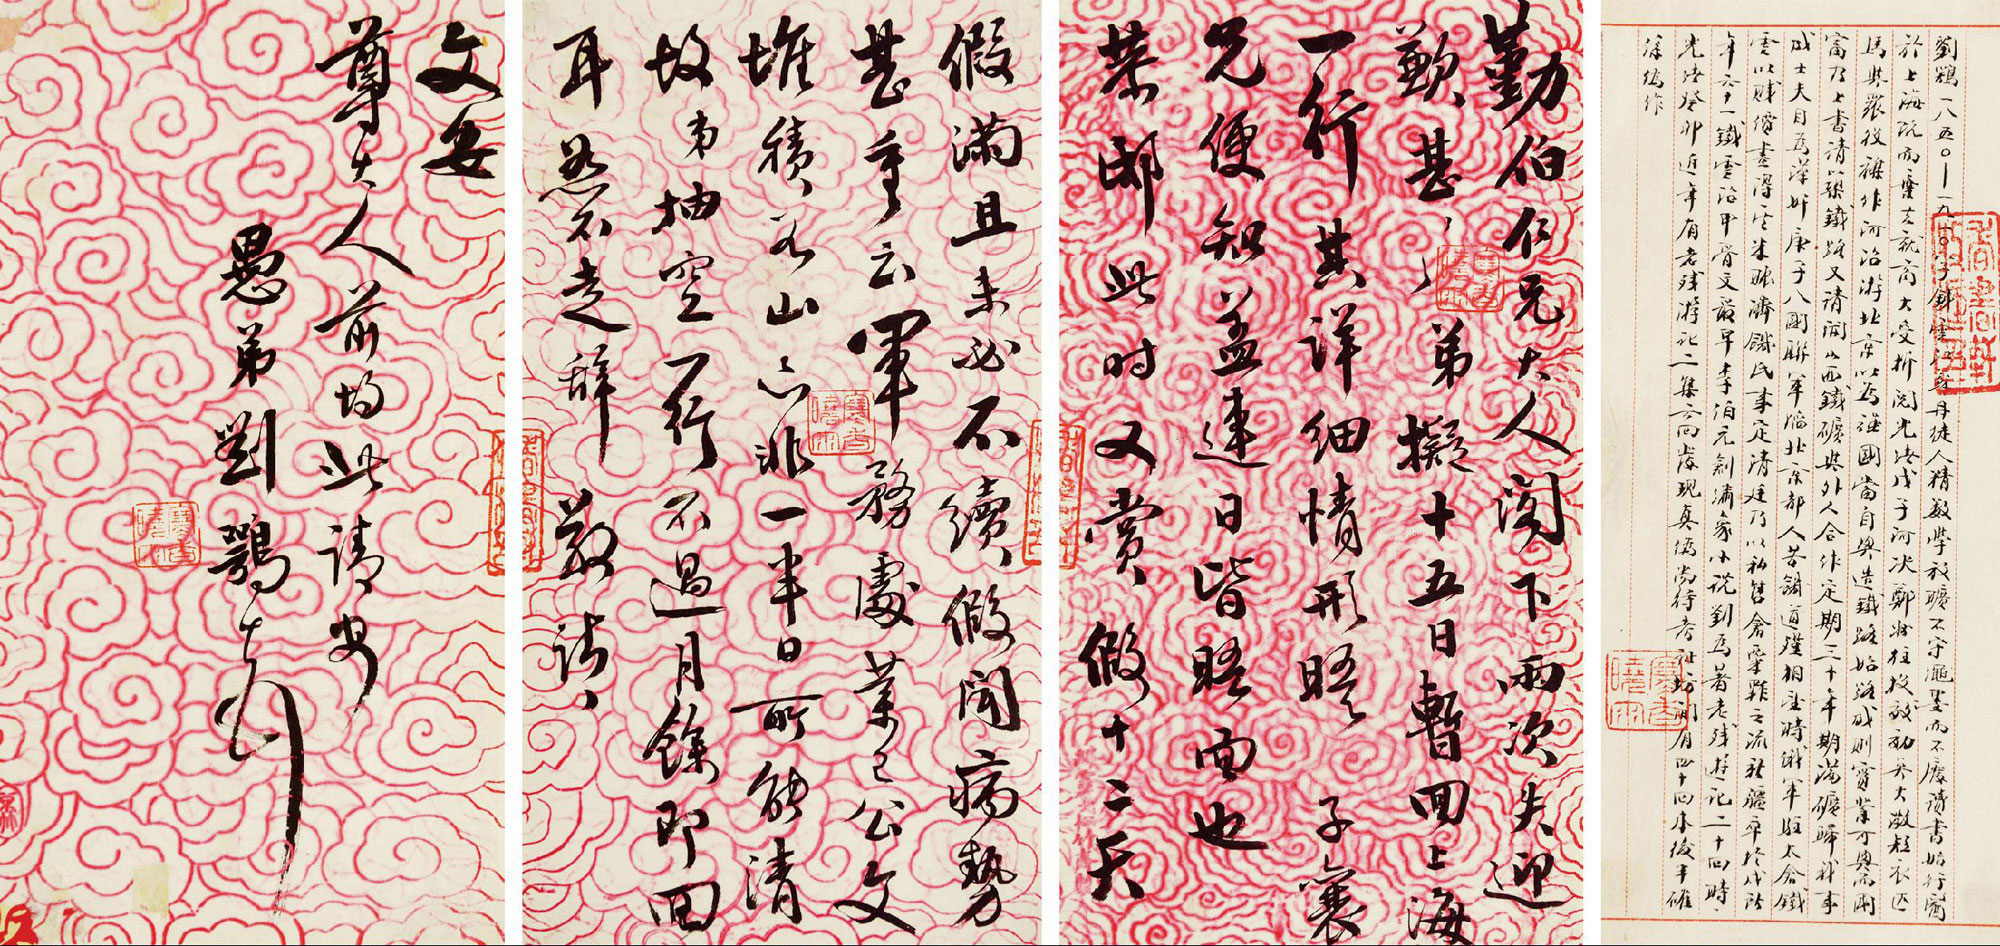 劉鶚一八五〇—一九一〇字鐵雲江蘇丹徒人精數學放曠不守繩墨而不廢讀書始行醫
於上海既而棄去就商大受折閱光緒戊子河決鄭州往投效初吳大澂短衣匹
馬與衆役雜作河治游北京以為強國當自興造鐵路始路成則實業可興而國
富乃上書請築鐵路又請開山西鐵礦與外人合作定期三十年期滿礦歸我事
成士夫目為漢奸庚子八國聯軍臨北京都人苦饑道殣相望時俄軍駐太倉鐵
雲以賤價盡得其米賑濟饑民事定清廷乃以私售倉粟罪之流新疆卒於戍所
年六十一鐵雲治甲骨文最早李伯元創繡像小說劉為著老殘遊記二十回時
光緒癸卯近年有老殘游記二集六回發現真偽尚待考証坊間有四十回本後半確
係偽作
勤伯仁兄大人閣下兩次失迎
歉甚々弟擬十五日暫回上海
一行其詳細情形晤子襄
兄便知蓋連日皆晤面也
榮邸此時又賞假十二天
假滿且未必不續假聞病勢
甚重云軍務處業已公文
堆積如山亦非一半日所能清
故弟抽空一行不過月餘即回
耳怱不走辭敬請
文安
尊大人前均此請安
愚弟劉鶚頓首